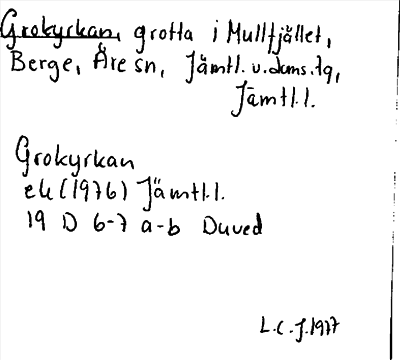 Grokyrkan, grotta i Mullfjället,
Berge, Åre sn, Jämtl. v. doms. tg,
Jämtl. l.
Grokyrkan
ek (1976) Jämtl. l.
19 D 6-7 a-b Duved
L.C.J. 1977